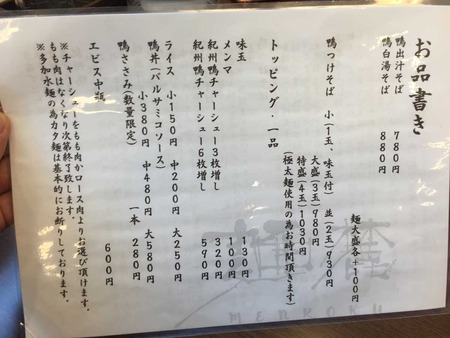 お品書き
鴨出汁そば 780円
鴨白湯そば 880円
麺大盛各+100円
鴨つけそば 小(1玉、味玉付) 並(2玉)930円
大盛(3玉)980円
特盛(4玉)1030円
(極太麺使用の為お時間頂きます)
トッピング・一品
味玉 130円
メンマ 100円
紀州鴨チャーシュー3枚増し 320円
紀州鴨チャーシュー6枚増し 590円
ライス 小150円 中200円 大250円
鴨丼(バルサミコソース)
小380円 中480円 大580円
鴨ささみ(数量限定) 一本 280円
エビス中瓶 600円
※チャーシューをもも肉かロース肉よりお選び頂けます。
もも肉はなくなり次第終了致します。
※多加水麺の為カタ麺は基本的にお断りしております。
MENROKU